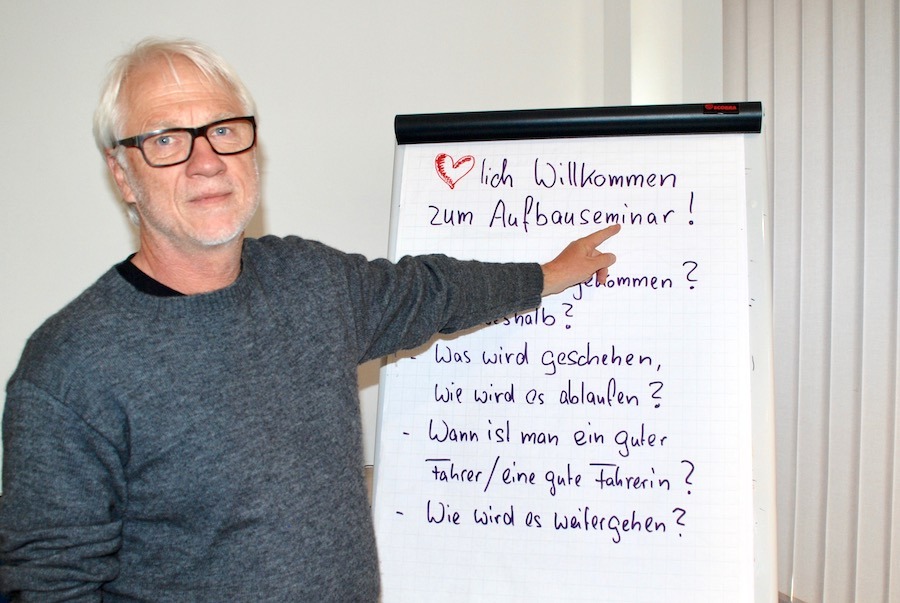 lich Willkommen
zum Aufbauseminar!
gekommen?
eshalb?
- Was wird geschehen,
wie wird es ablaufen?
- Wann ist man ein guter
Fahrer/eine gute Fahrerin?
- Wie wird es weitergehen?